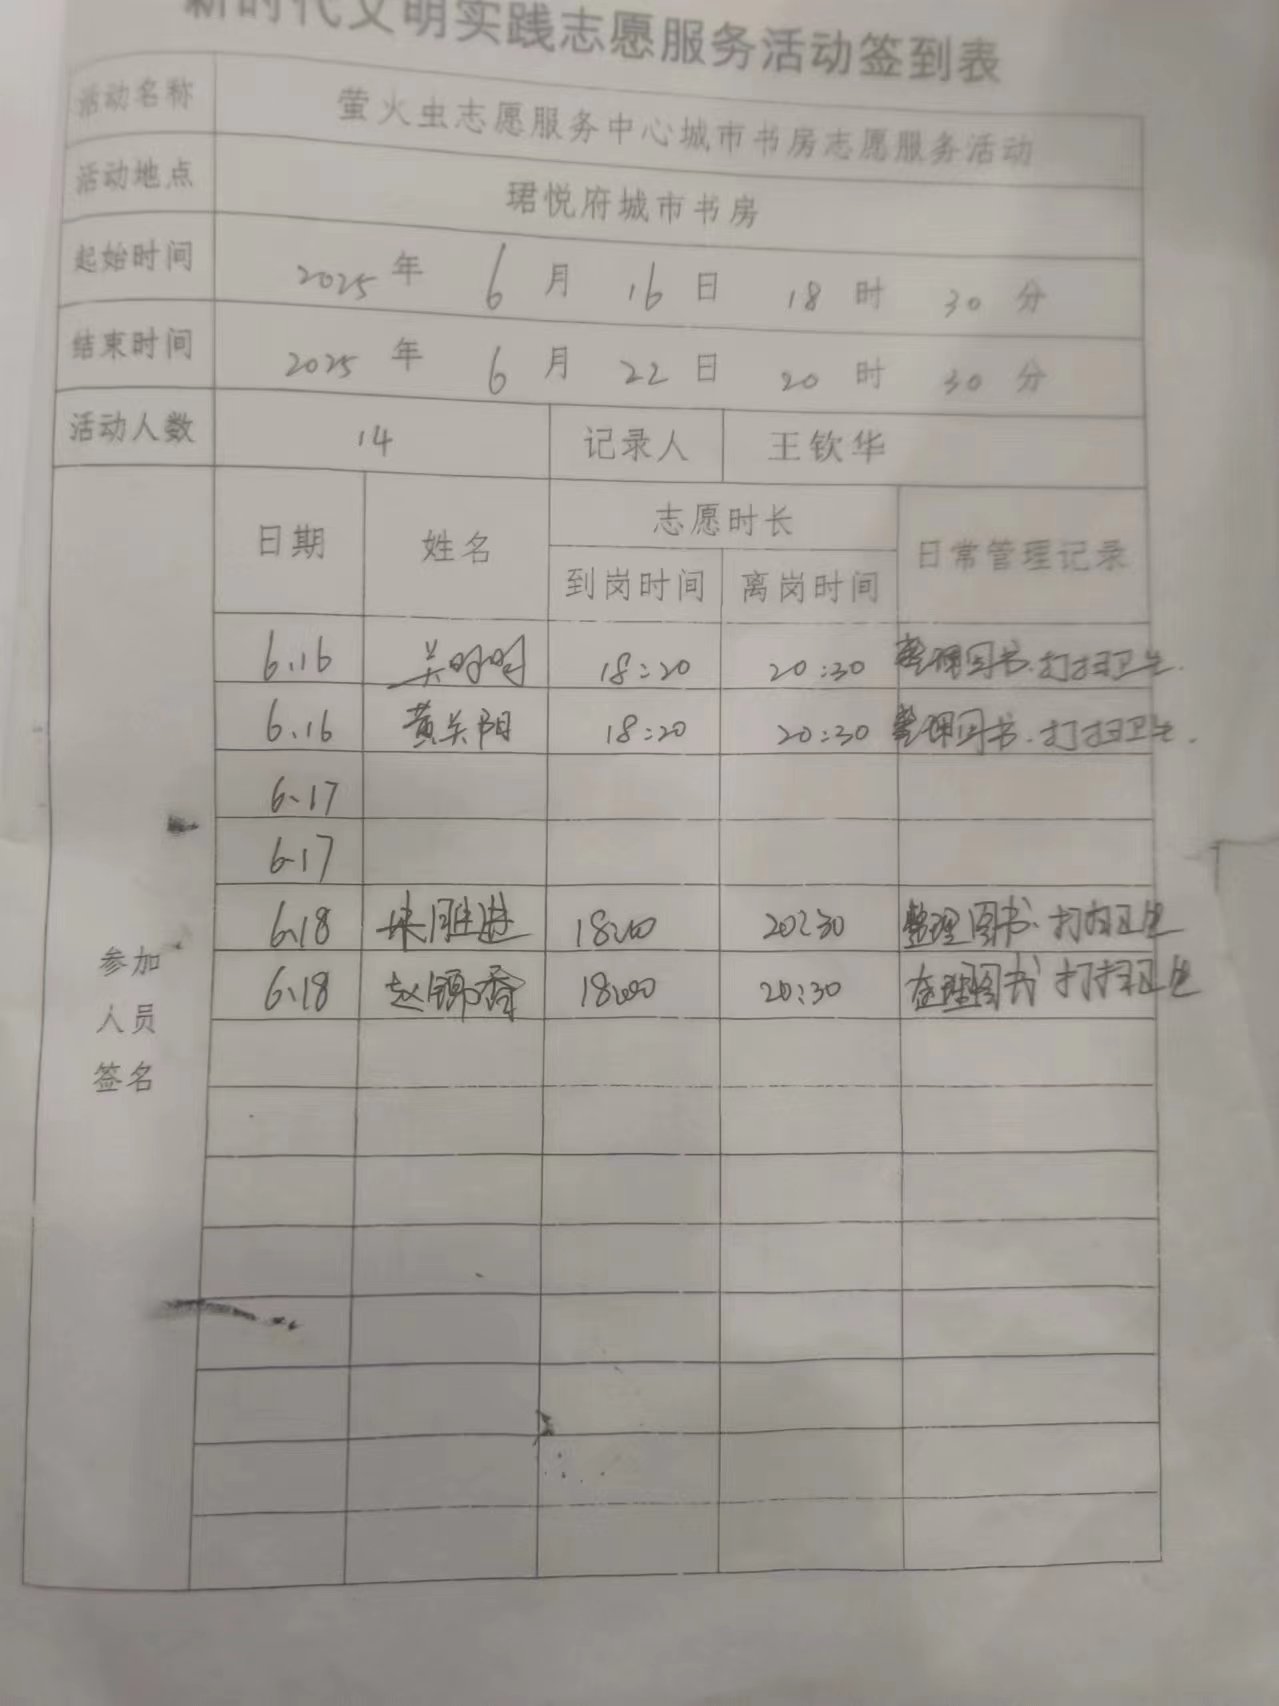 新时代文明实践志愿服务活动签到表
活动名称 萤火虫志愿服务中心城市书房志愿服务活动
活动地点 珺悦府城市书房
起始时间 2025年 6月 16日 18时 30分
结束时间 2025年 6月 22日 20时 30分
活动人数 14 记录人 王钦华
日期 姓名 志愿时长 日常管理记录
到岗时间 离岗时间
6.16 18:20 20:30 整理图书.打扫卫生.
6.16 黄关阳 18:20 20:30 整理图书.打扫卫生.
6.17
6.17
6.18 18:00 20:30 整理图书.打扫卫生
6.18 赵锦香 18:00 20:30 整理图书 打扫卫生
参加
人员
签名